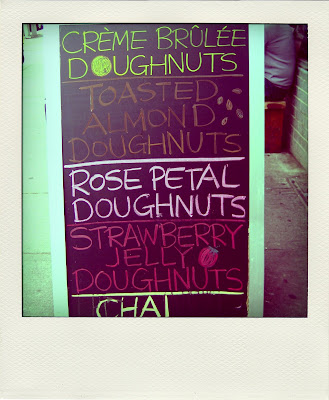 CRÈME BRÛLÉE
DOUGHNUTS
TOASTED
ALMOND
DOUGHNUTS
ROSE PETAL
DOUGHNUTS
STRAWBERRY
JELLY
DOUGHNUTS
CHAI